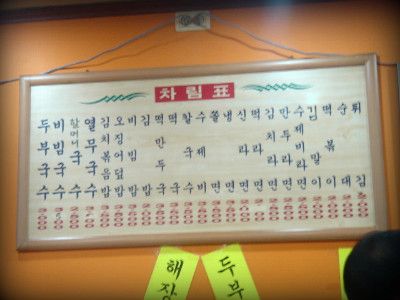 차림표
두부국수
비빔국수
할머니국수
열무국수
김치볶음밥
오징어덮밥
비빔밥
김밥
떡만두국
떡국
칼국수
수제비
쫄면
냉면
신라면
떡라면
김치라면
만두라면
수제비라면
김말이
떡볶이
순대
튀김
해장
두부